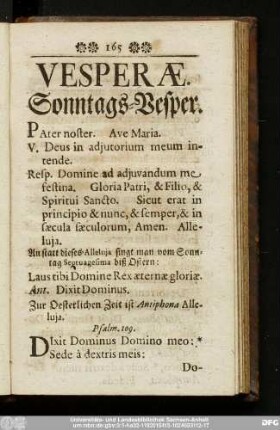 165
VESPERÆ.
Sonntags-Vesper.
PAter noster. Ave Maria.
V. Deus in adjutorium meum in-
tende.
Resp. Domine ad adjuvandum me
festina. Gloria Patri, & Filio, &
Spiritui Sancto. Sicut erat in
principio & nunc, & semper, & in
sæcula sæculorum, Amen. Alle-
luja.
Anstatt dieses Alleluja singt man vom Sonn-
tag Septuagesima biß Ostern:
Laus tibi Domine Rex æternæ gloriæ.
Ant. Dixit Dominus.
Zur Oesterlichen Zeit ist Antiphona Alle-
luja.
Psalm. 109.
DIxit Dominus Domino meo: *
Sede à dextris meis:
Do-
Universitäts- und Landesbibliothek Sachsen-Anhalt
DFG